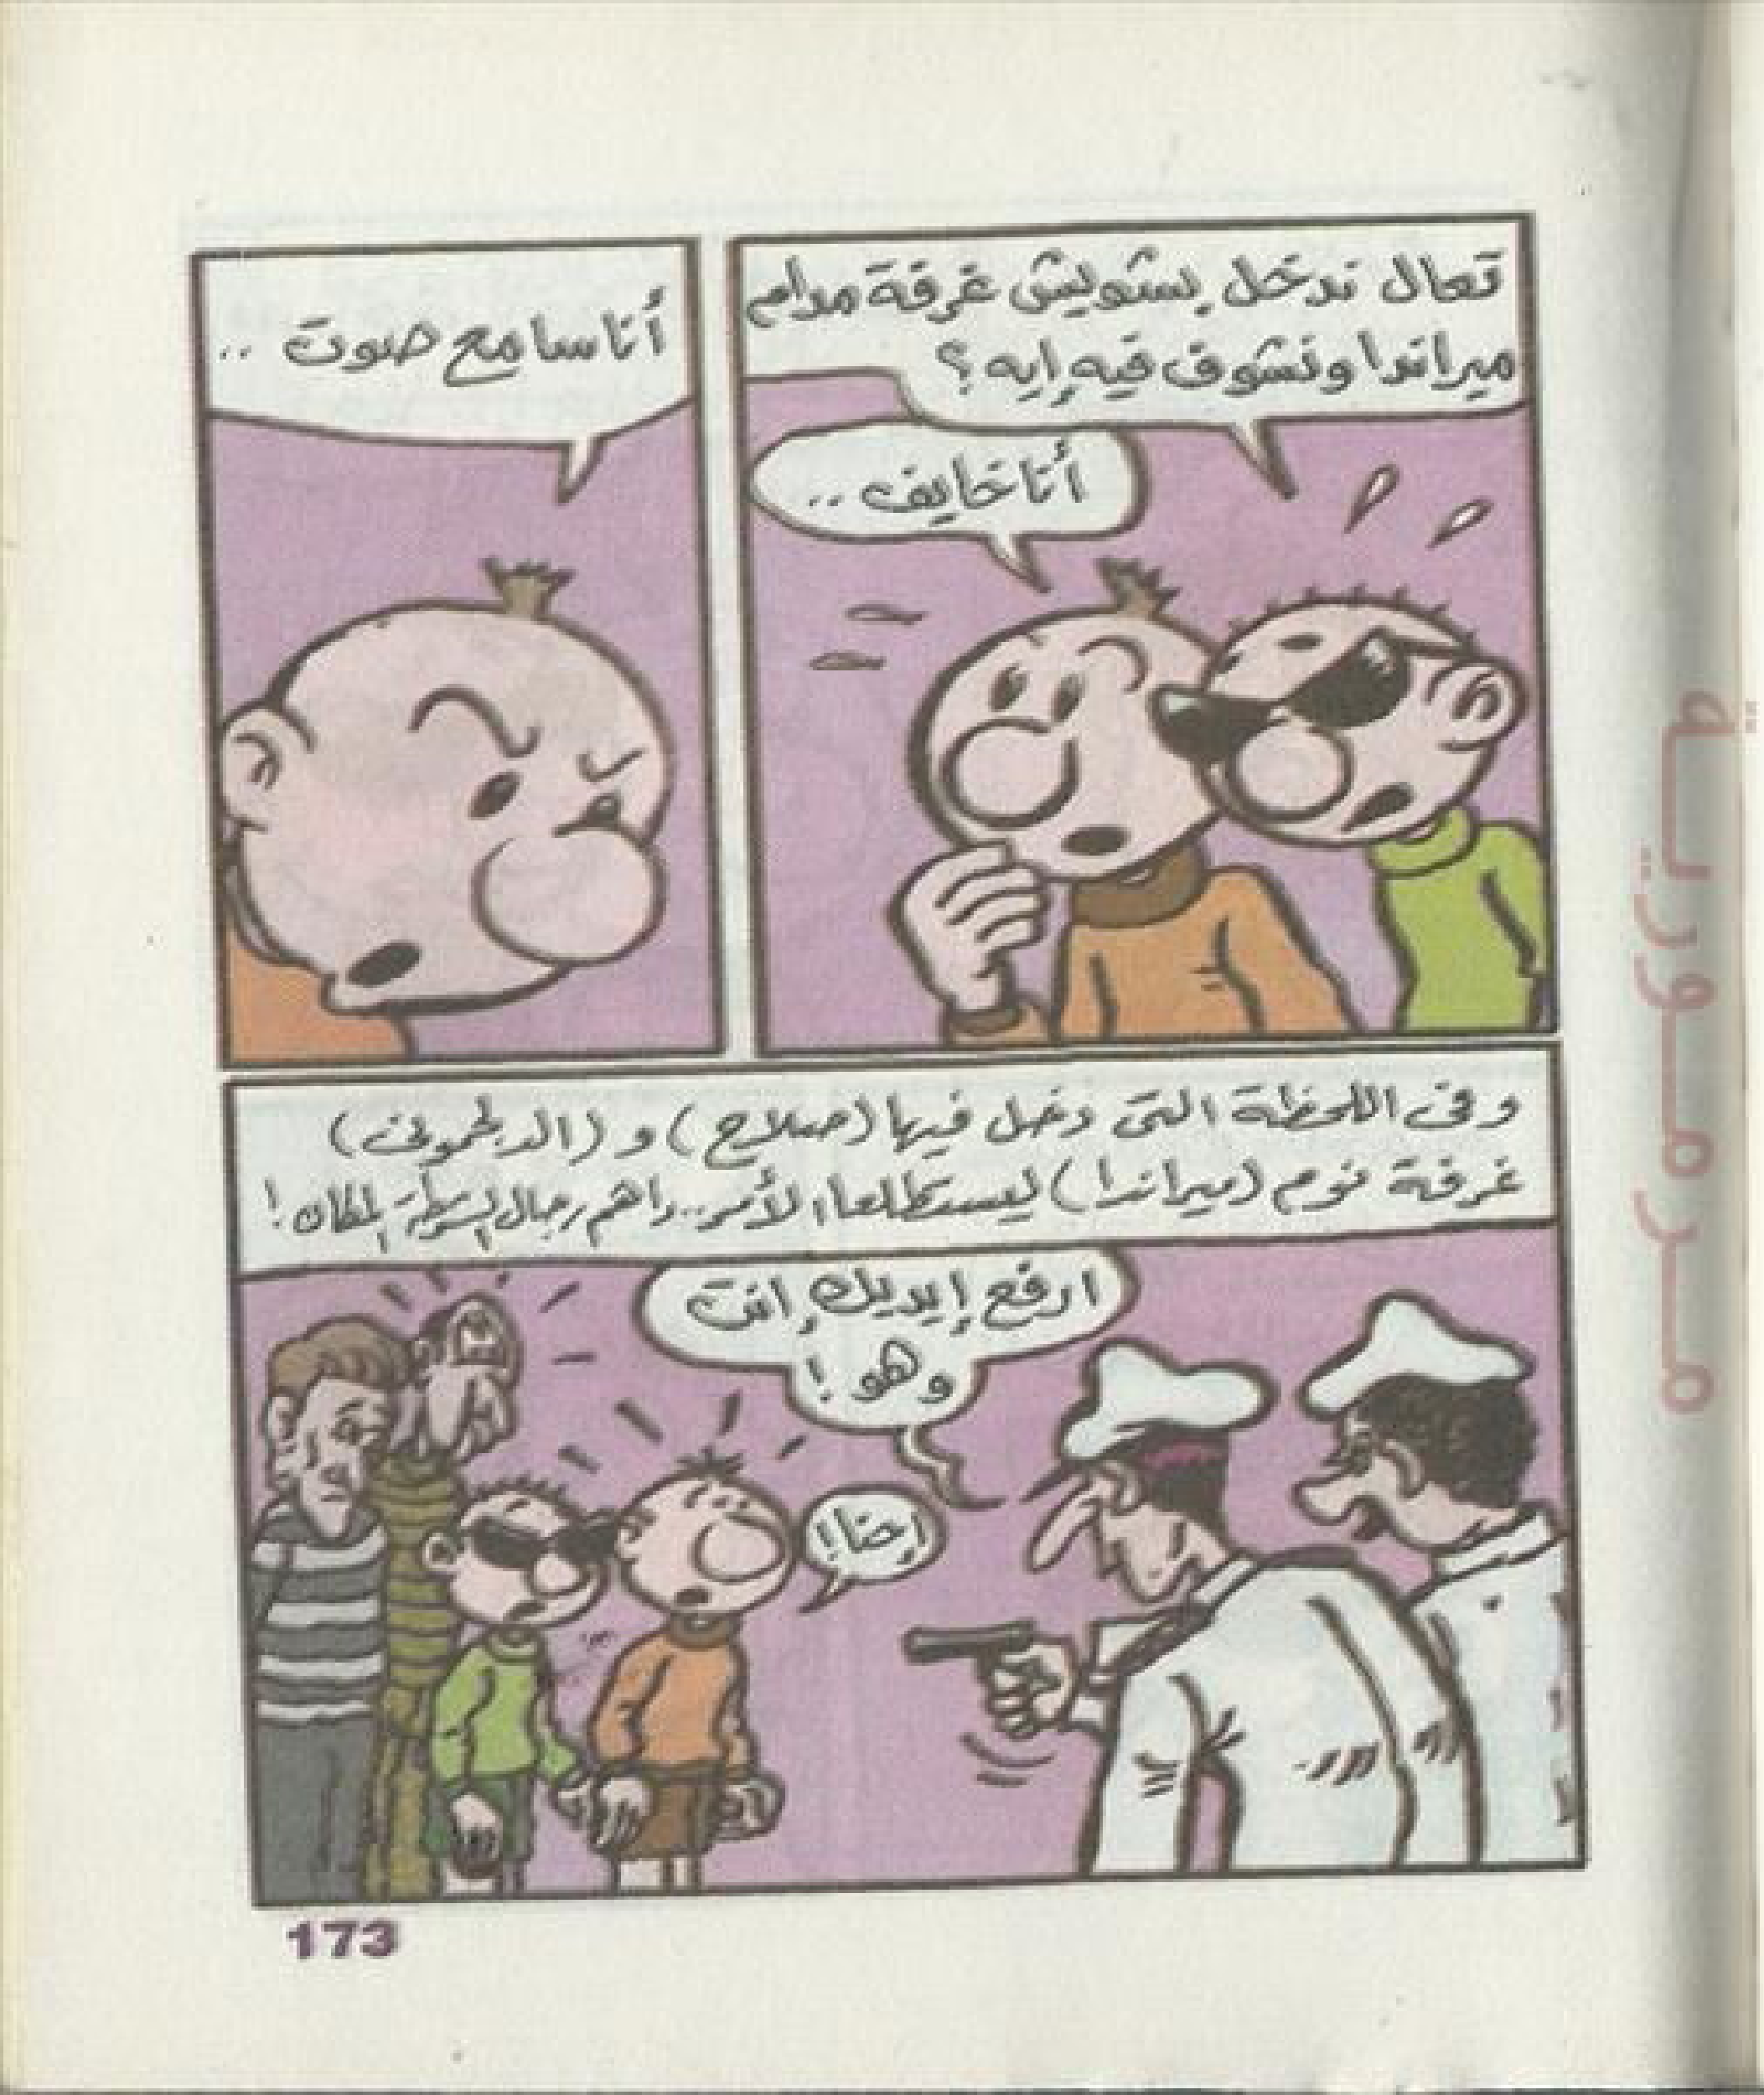 تعال ندخل بشويش غرفة مدام
ميراندا ونشوف فيه إيه؟
أنا خايف ..
أنا سامع صوت ..
وفى اللحظة التى دخل فيها (صلاح) و (الدبلجمونى)
غرفة نوم (ميراندا) ليستطلعا الأمر.. داهم رجال الشرطة المكان!
ارفع إيديك إنت
وهو!
إحنا!
173
مرمورية